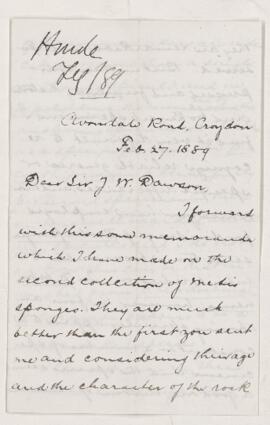 Hinde
Feb/89
Avondale Road, Croydon
Feb 27. 1889
Dear Sir J. W. Dawson,
I forward
with this some memoranda
which I have made on the
second collection of Metis
sponges. They are much
better than the first you sent
me and considering their age
and the character of the rock